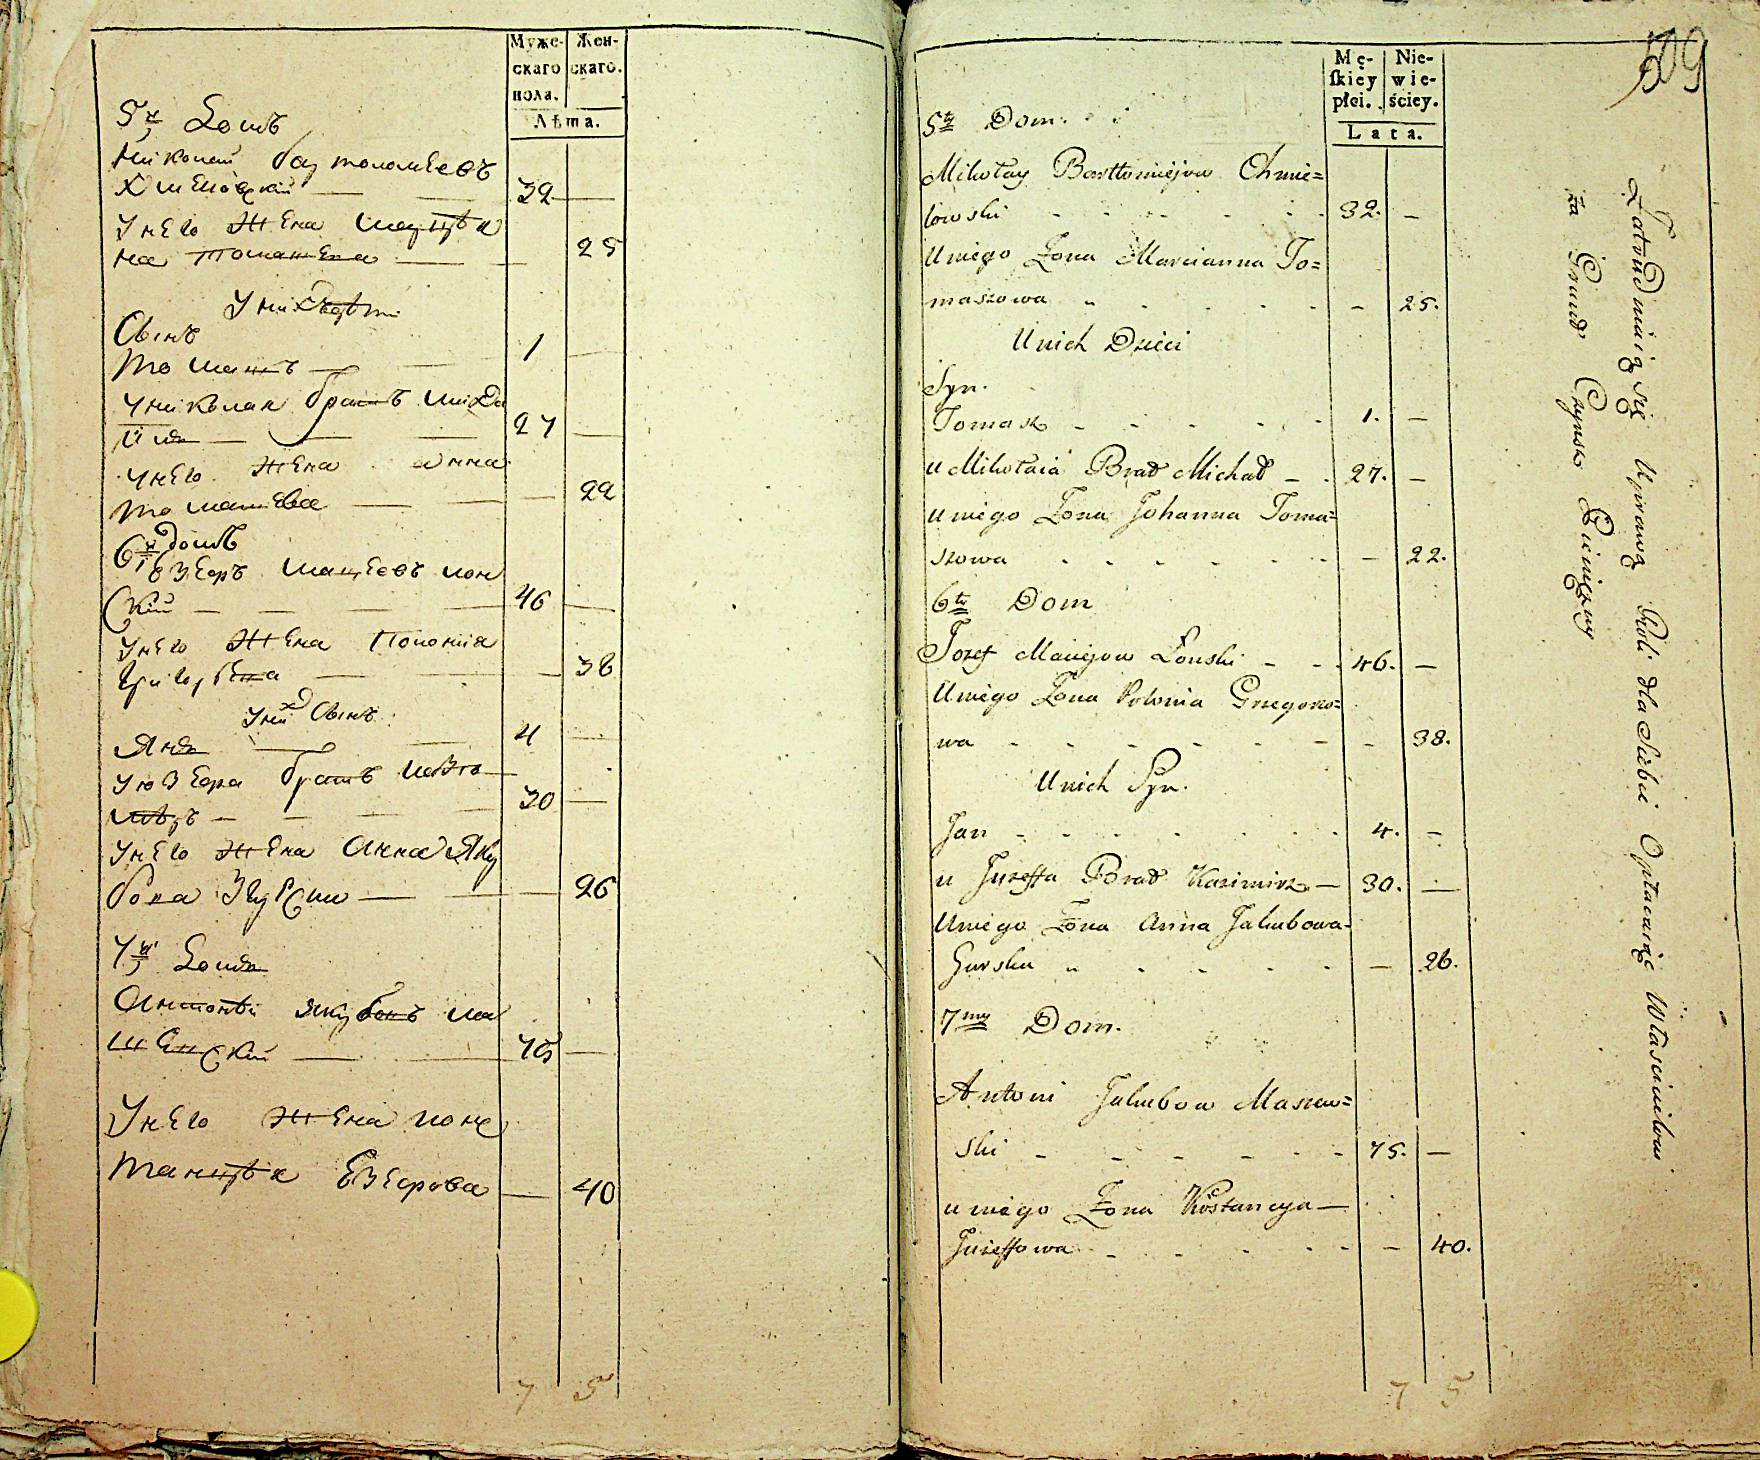 Муже-
скаго
пола.
Жен-
скаго.
Лѣта.
5й Домъ
Николай Бартоломѣевъ
Хмелѣвскій — 32 —
У него жена Марцѣя
на Томашева — 25
У них Дѣти
Сынъ
Томашъ — 1 —
У Николая братъ Миха
йла — 27 —
У него жена Анна
Томашева — 22
6й домъ
Езефъ Мацеевъ Лон
скій — 46 —
У него жена Полонія
Григорьева — 38
У них Сынъ
Янъ — 4 —
У Юзефа братъ Казю
мѣръ — 30 —
У него жена Анна Яку
бова Згурски — 26
7й Домъ
Антонѣй Якубовъ Ма
шевскій — 75 —
У него жена Конс
танцѣя Езефова — 40
7 5
509
Mę-
skiey
płci.
Nie-
wie-
ściey.
Lata.
5ty Dom.
Mikołay Bartłomiejow Chmie=
lowski - - - - - 32. —
U niego Żona Marcianna To=
maszowa - - - - — 25.
U nich Dzieci
Syn.
Tomasz - - - - - 1. —
u Mikołaia Brat Michał — 27. —
u niego Żona Johanna Toma=
szowa - - - - - — 22.
6ty Dom
Jozef Maciejow Łonski - - 46. —
U niego Żona Polonia Grzegorzo=
wa - - - - - - 38.
U nich Syn.
Jan - - - - - - 4. —
u Juzeffa Brat Kazimirz — 30. —
U niego Żona Anna Jakubowa-
Gurska - - - - - — 26.
7my Dom.
Antoni Jakubow Maszew=
ski - - - - - - 75. —
u niego Żona Kostancya —
Juzeffowa - - - - - — 40.
7 5
Zatrudniaią się Uprawą Roli dla Siebie Opłacaiąc Właścicielowi
za Grunt Czynsz Pieniężny